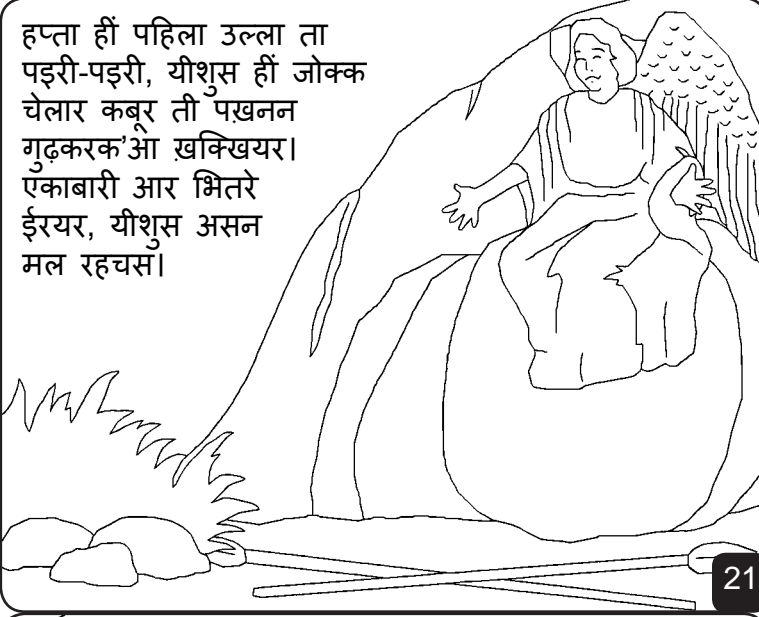 हप्ता हीं पहिला उल्ला ता
पइरी-पइरी, यीशुस हीं जोक्क
चेलार कबूर ती पख़नन
गुढ़करक'आ ख़क्खियर।
एकाबारी आर भितरे
ईरयर, यीशुस असन
मल रहचस।
21